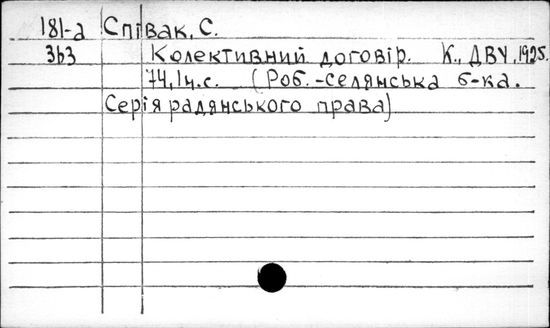 181-а Співак, С.
3ЬЗ Колективний договір. К., ДВУ, 1925.
74, 1 н.с. (Роб.-селянська б-ка.
Серія радянського права)